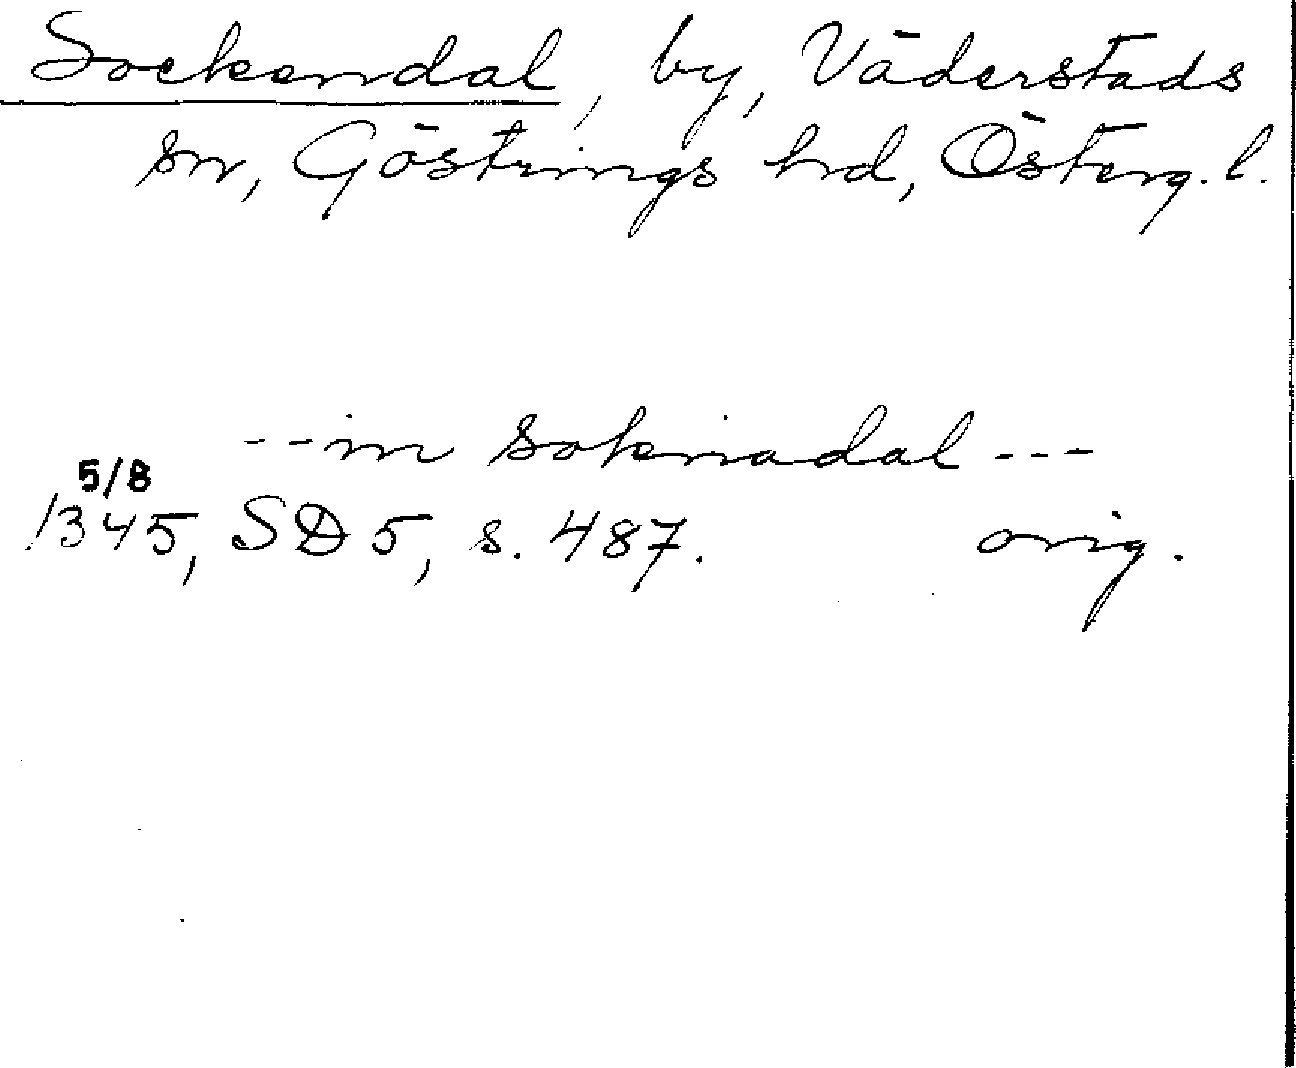 Sockendal, by, Väderstads
sn, Göstrings hd, Österg. l.
--in soknadal---
5/8
1345, SD 5, s. 487. orig.